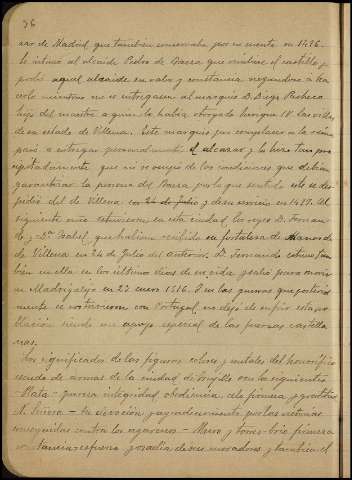 36
aro de Madrid, que tambien conservaba por su muerte en 1496.
Se intimó al alcaide Pedro de Baeza, que rindiese el castillo, y
pudo aquel alcaide su valor y constancia negandose a ha-
cerlo mientras no se entregasen al marqués D. Diego Pacheco
hijo del maestre a quien le habia otorgado Enrique IV. las villas
de su estado de Villena. Este marqués por complacer a la reina
pasó a entregar personalmente el alcazar, y lo hizo tan pre-
cipitadamente que ni se surgió de las condiciones que debian
garantizar la persona del Baeza, por lo que sentido este se des-
pidió del de Villena en 24 de Julio y de su servicio en 1477. Al
siguiente año estuvieron en esta ciudad los reyes D. Fernan-
do y Dª Isabel, que habian recibido su fortaleza de manos de
de Villena en 24 de Julio del anterior. D. Fernando estuvo tam-
bien en ella en los ultimos dias de su vida, y salió para morir
en Madrigalejo en 23 enero 1516. En las guerras que posterior-
mente se sostuvieron con Portugal, no dejó de sufrir esta po-
blacion siendo un apoyo especial de las fuerzas castella-
nas.
Los significados de las figuras, colores, y metales del honorifico
escudo de armas de la ciudad de Trujillo son los siguientes
- Plata - pureza, integridad, obediencia, celo, firmeza, y gratitud
N. Señora - la devocion, y agradecimiento por las victorias
conseguidas contra los agarenos - Muro, y torres - brio, firmeza
constancia, esfuerzo, y osadia de sus moradores, y tambien el